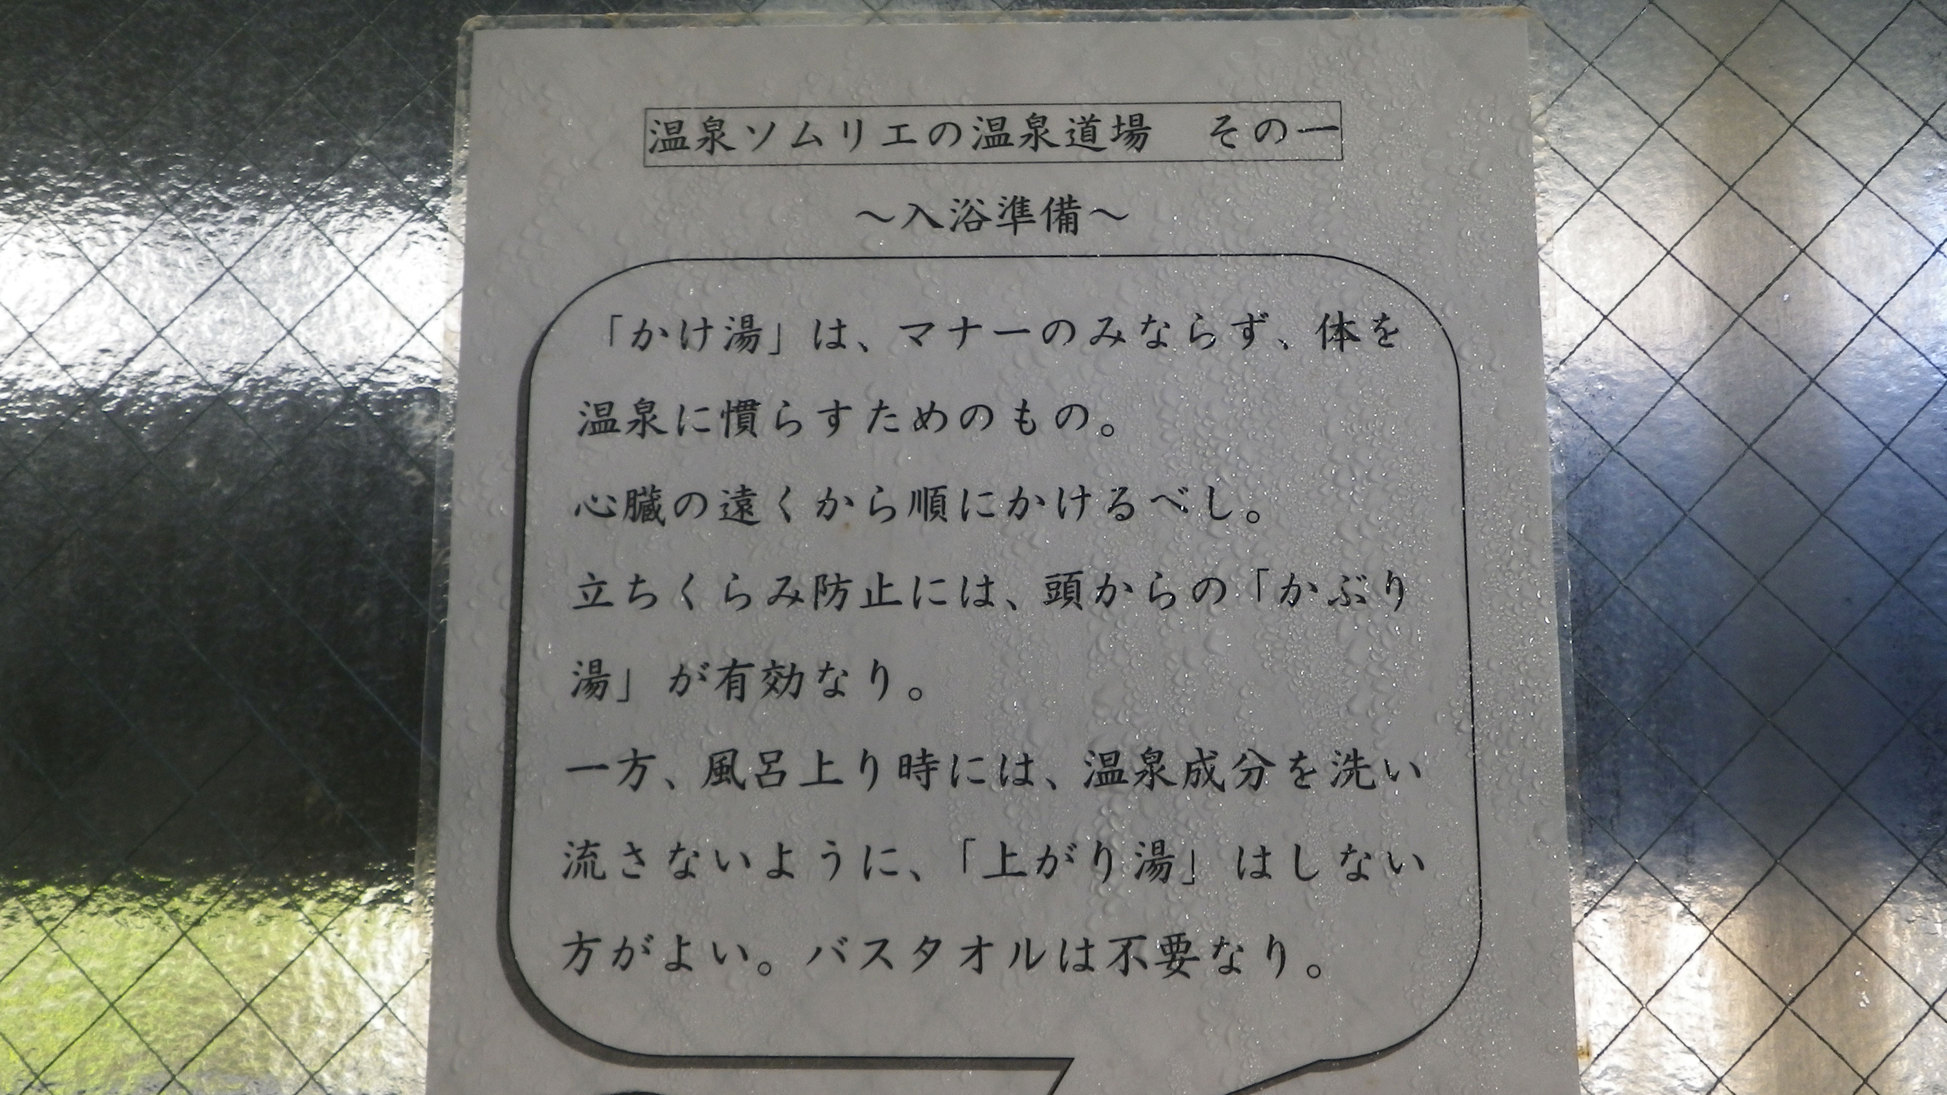 温泉ソムリエの温泉道場　その一
～入浴準備～
「かけ湯」は、マナーのみならず、体を
温泉に慣らすためのもの。
心臓の遠くから順にかけるべし。
立ちくらみ防止には、頭からの「かぶり
湯」が有効なり。
一方、風呂上り時には、温泉成分を洗い
流さないように、「上がり湯」はしない
方がよい。バスタオルは不要なり。